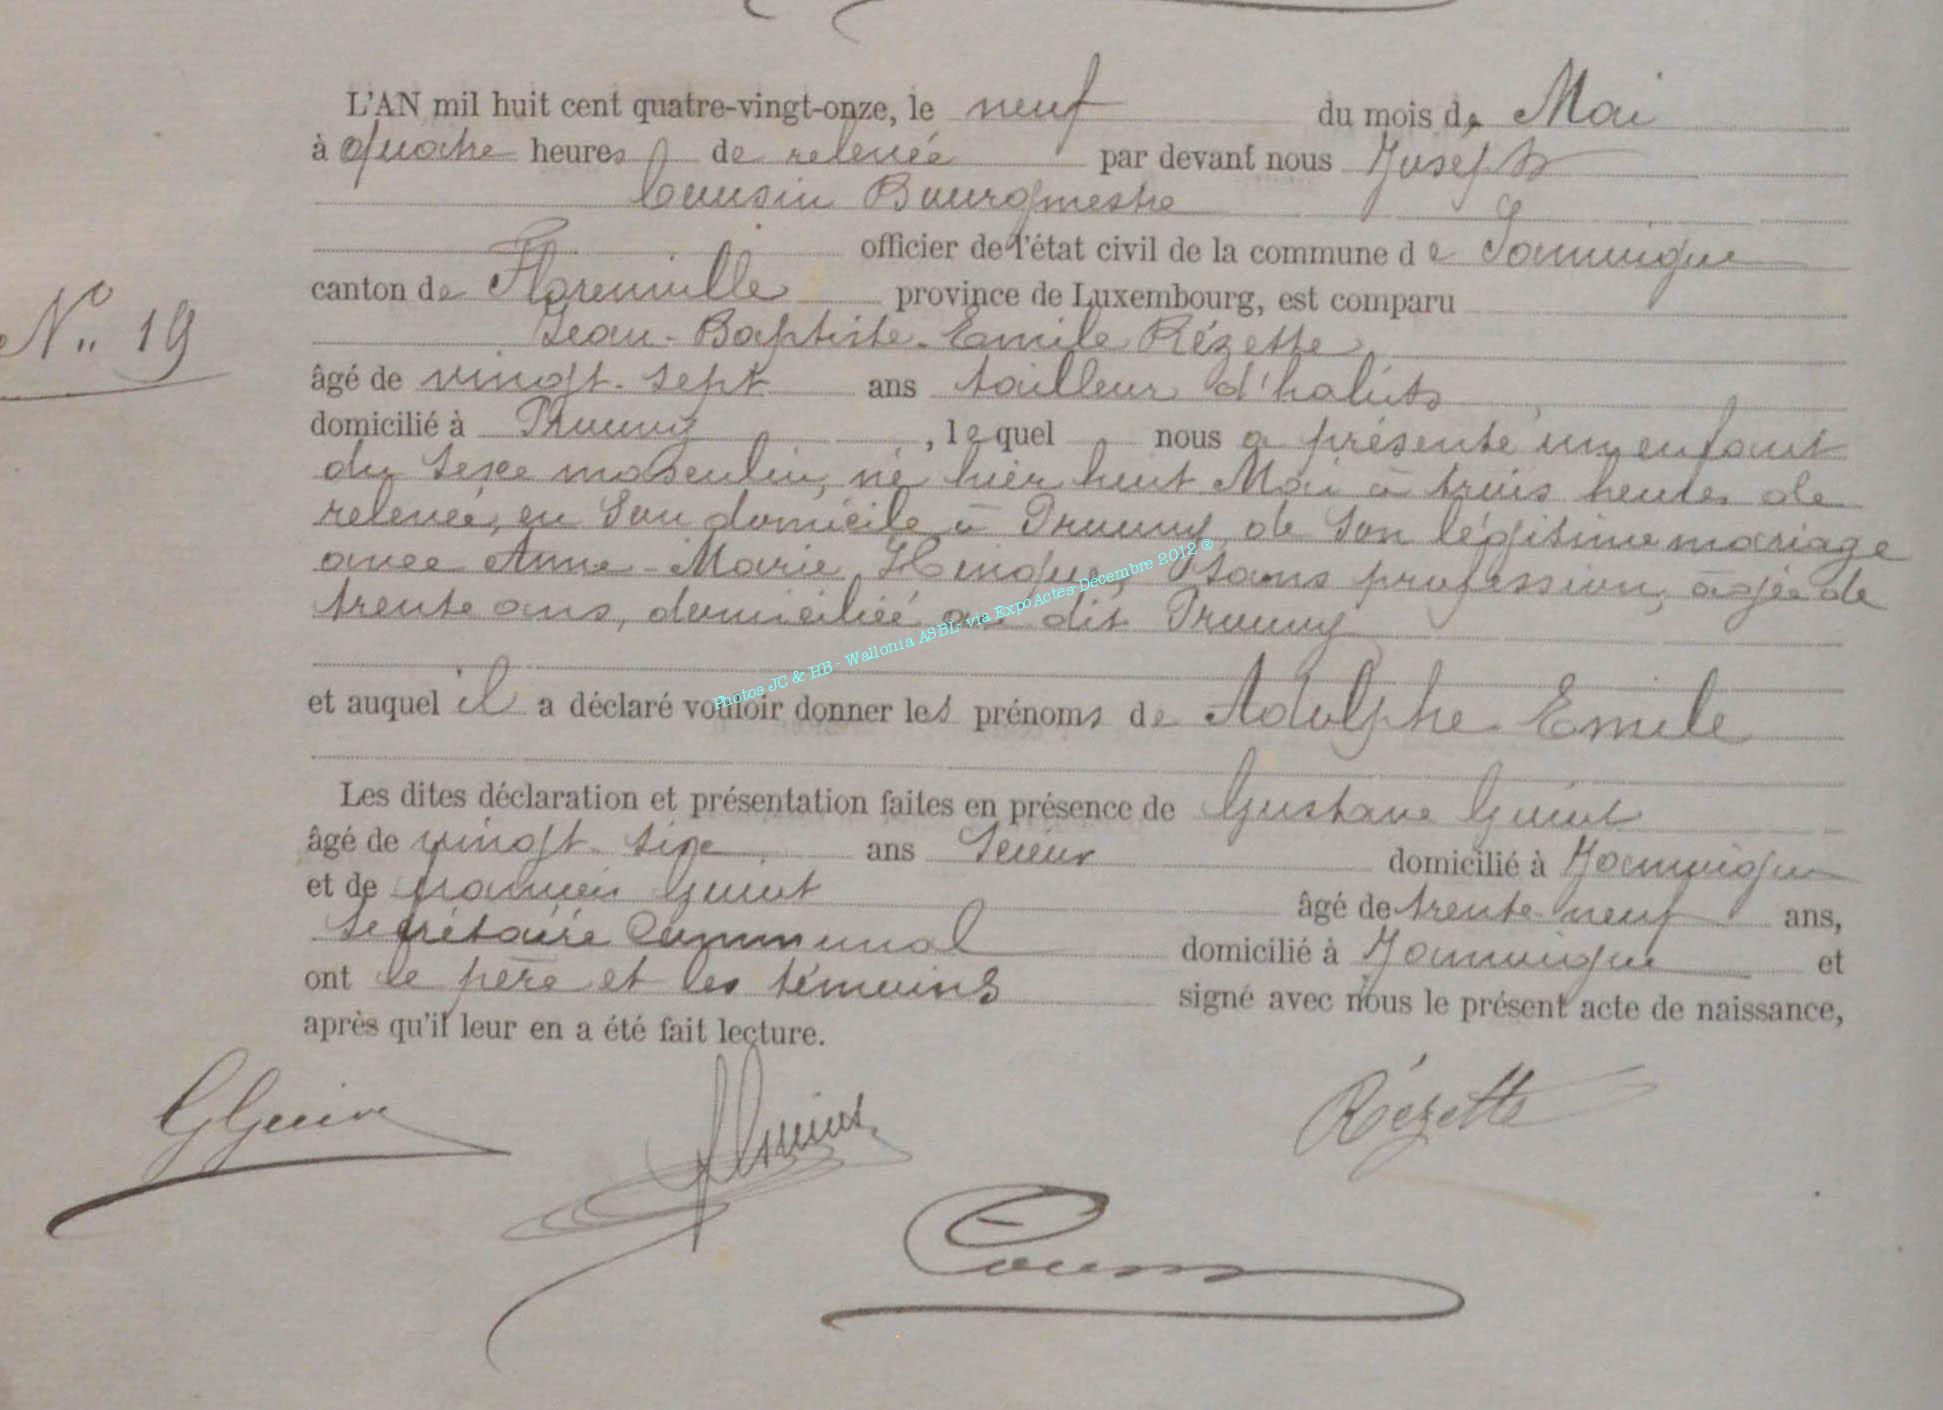 L'AN mil huit cent quatre-vingt-onze, le neuf du mois de Mai
à quatre heures de relevée par devant nous Joseph
Cousin Bourgmestre
officier de l'état civil de la commune de Jamoigne
canton de Florenville province de Luxembourg, est comparu
N° 19
Jean-Baptiste-Emile Rézette,
âgé de vingt-sept ans tailleur d'habits
domicilié à Prouvy, lequel nous a présenté un enfant
du sexe masculin, né hier huit Mai à trois heures de
relevée, en son domicile à Prouvy, de son légitime mariage
avec Anne-Marie Hinque, sans profession, âgée de
trente ans, domiciliée au dit Prouvy
Photos JC & HB - Wallonia ASBL- via ExpoActes-Décembre 2012 ®
et auquel il a déclaré vouloir donner les prénoms de Adolphe-Emile
Les dites déclaration et présentation faites en présence de Gustave Guiot
âgé de vingt-six ans Scieur domicilié à Jamoigne
et de François Guiot âgé de trente-neuf ans,
secrétaire Communal domicilié à Jamoigne et
ont le père et les témoins signé avec nous le présent acte de naissance,
après qu'il leur en a été fait lecture.
GGuiot
Guiot
Rézette
Cousin